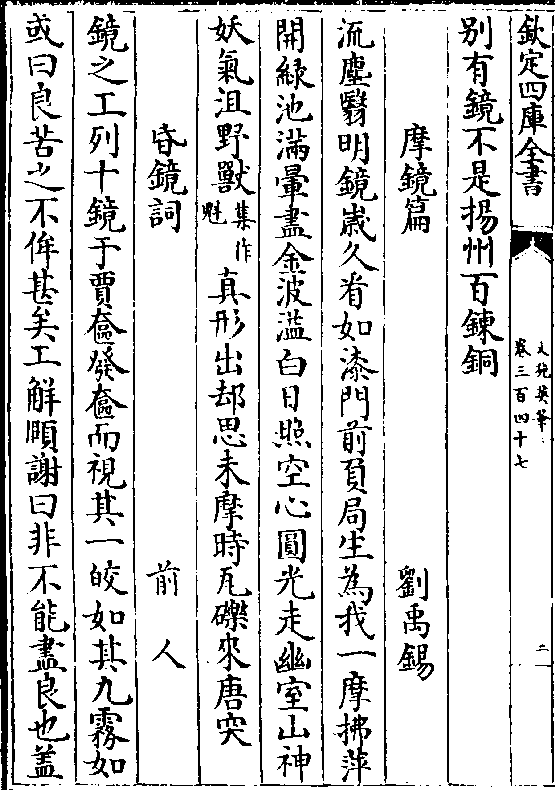 欽定四庫全書
文苑英華
卷三百四十七
二
别有鏡不是揚州百鍊銅
摩鏡篇 劉禹錫
流塵翳明鏡歲久看如漆門前負局生為我一摩拂萍
開緑池滿暈盡金波溢白日照空心圓光走幽室山神
妖氣沮野獸集作魁真形出却思未摩時瓦礫來唐突
昏鏡詞 前人
鏡之工列十鏡于賈奩發奩而視其一皎如其九霧如
或曰良苦之不侔甚矣工解頤謝曰非不能盡良也盖